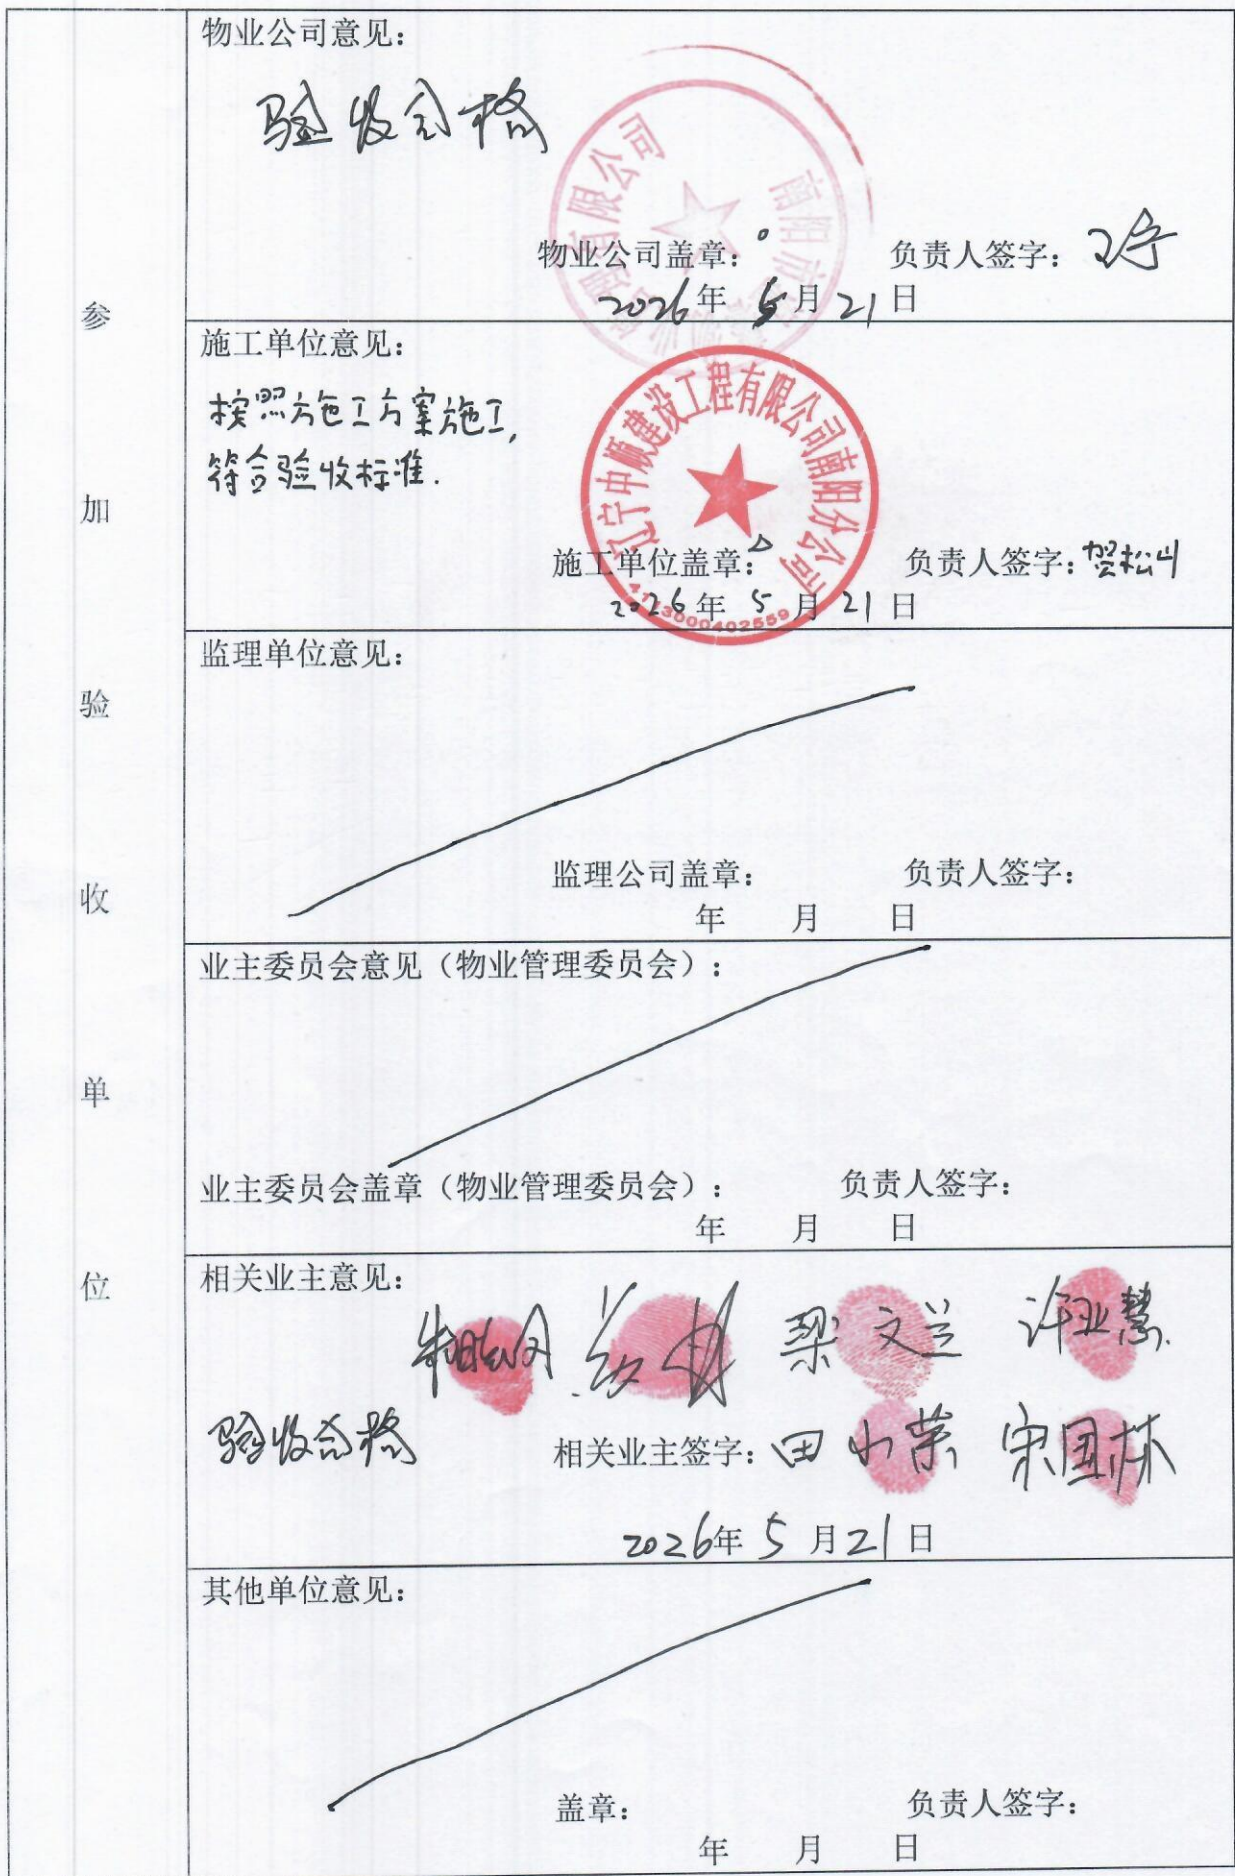 物业公司意见：
验收合格
南阳市
有限公司
物业公司盖章：
负责人签字：
2026年 5月21日
施工单位意见：
按照施工方案施工,
符合验收标准.
辽宁中顺建设工程有限公司南阳分公司
4113000402559
施工单位盖章：
负责人签字：贺松山
2026年 5月21日
监理单位意见：
监理公司盖章：
负责人签字：
年 月 日
业主委员会意见（物业管理委员会）：
业主委员会盖章（物业管理委员会）：
负责人签字：
年 月 日
相关业主意见：
梁文兰 许亚慧
验收合格
相关业主签字：田小荣 宋国林
2026年 5月21日
其他单位意见：
盖章：
负责人签字：
年 月 日
参加验收单位